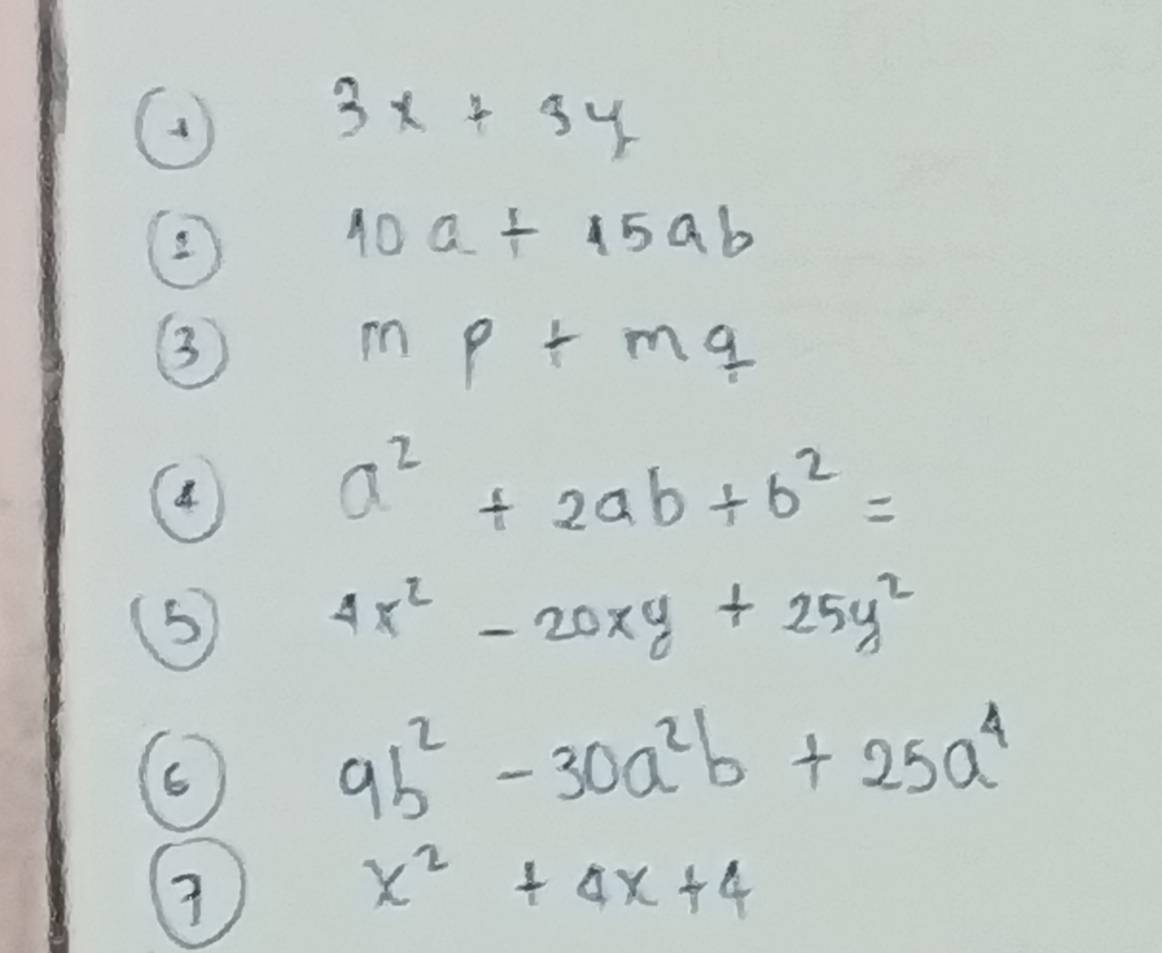 ① 3x + 3y
② 10a + 15ab
③ mp + mq
④ a² + 2ab + b² =
⑤ 4x² - 20xy + 25y²
⑥ 9b² - 30a²b + 25a⁴
⑦ x² + 4x + 4